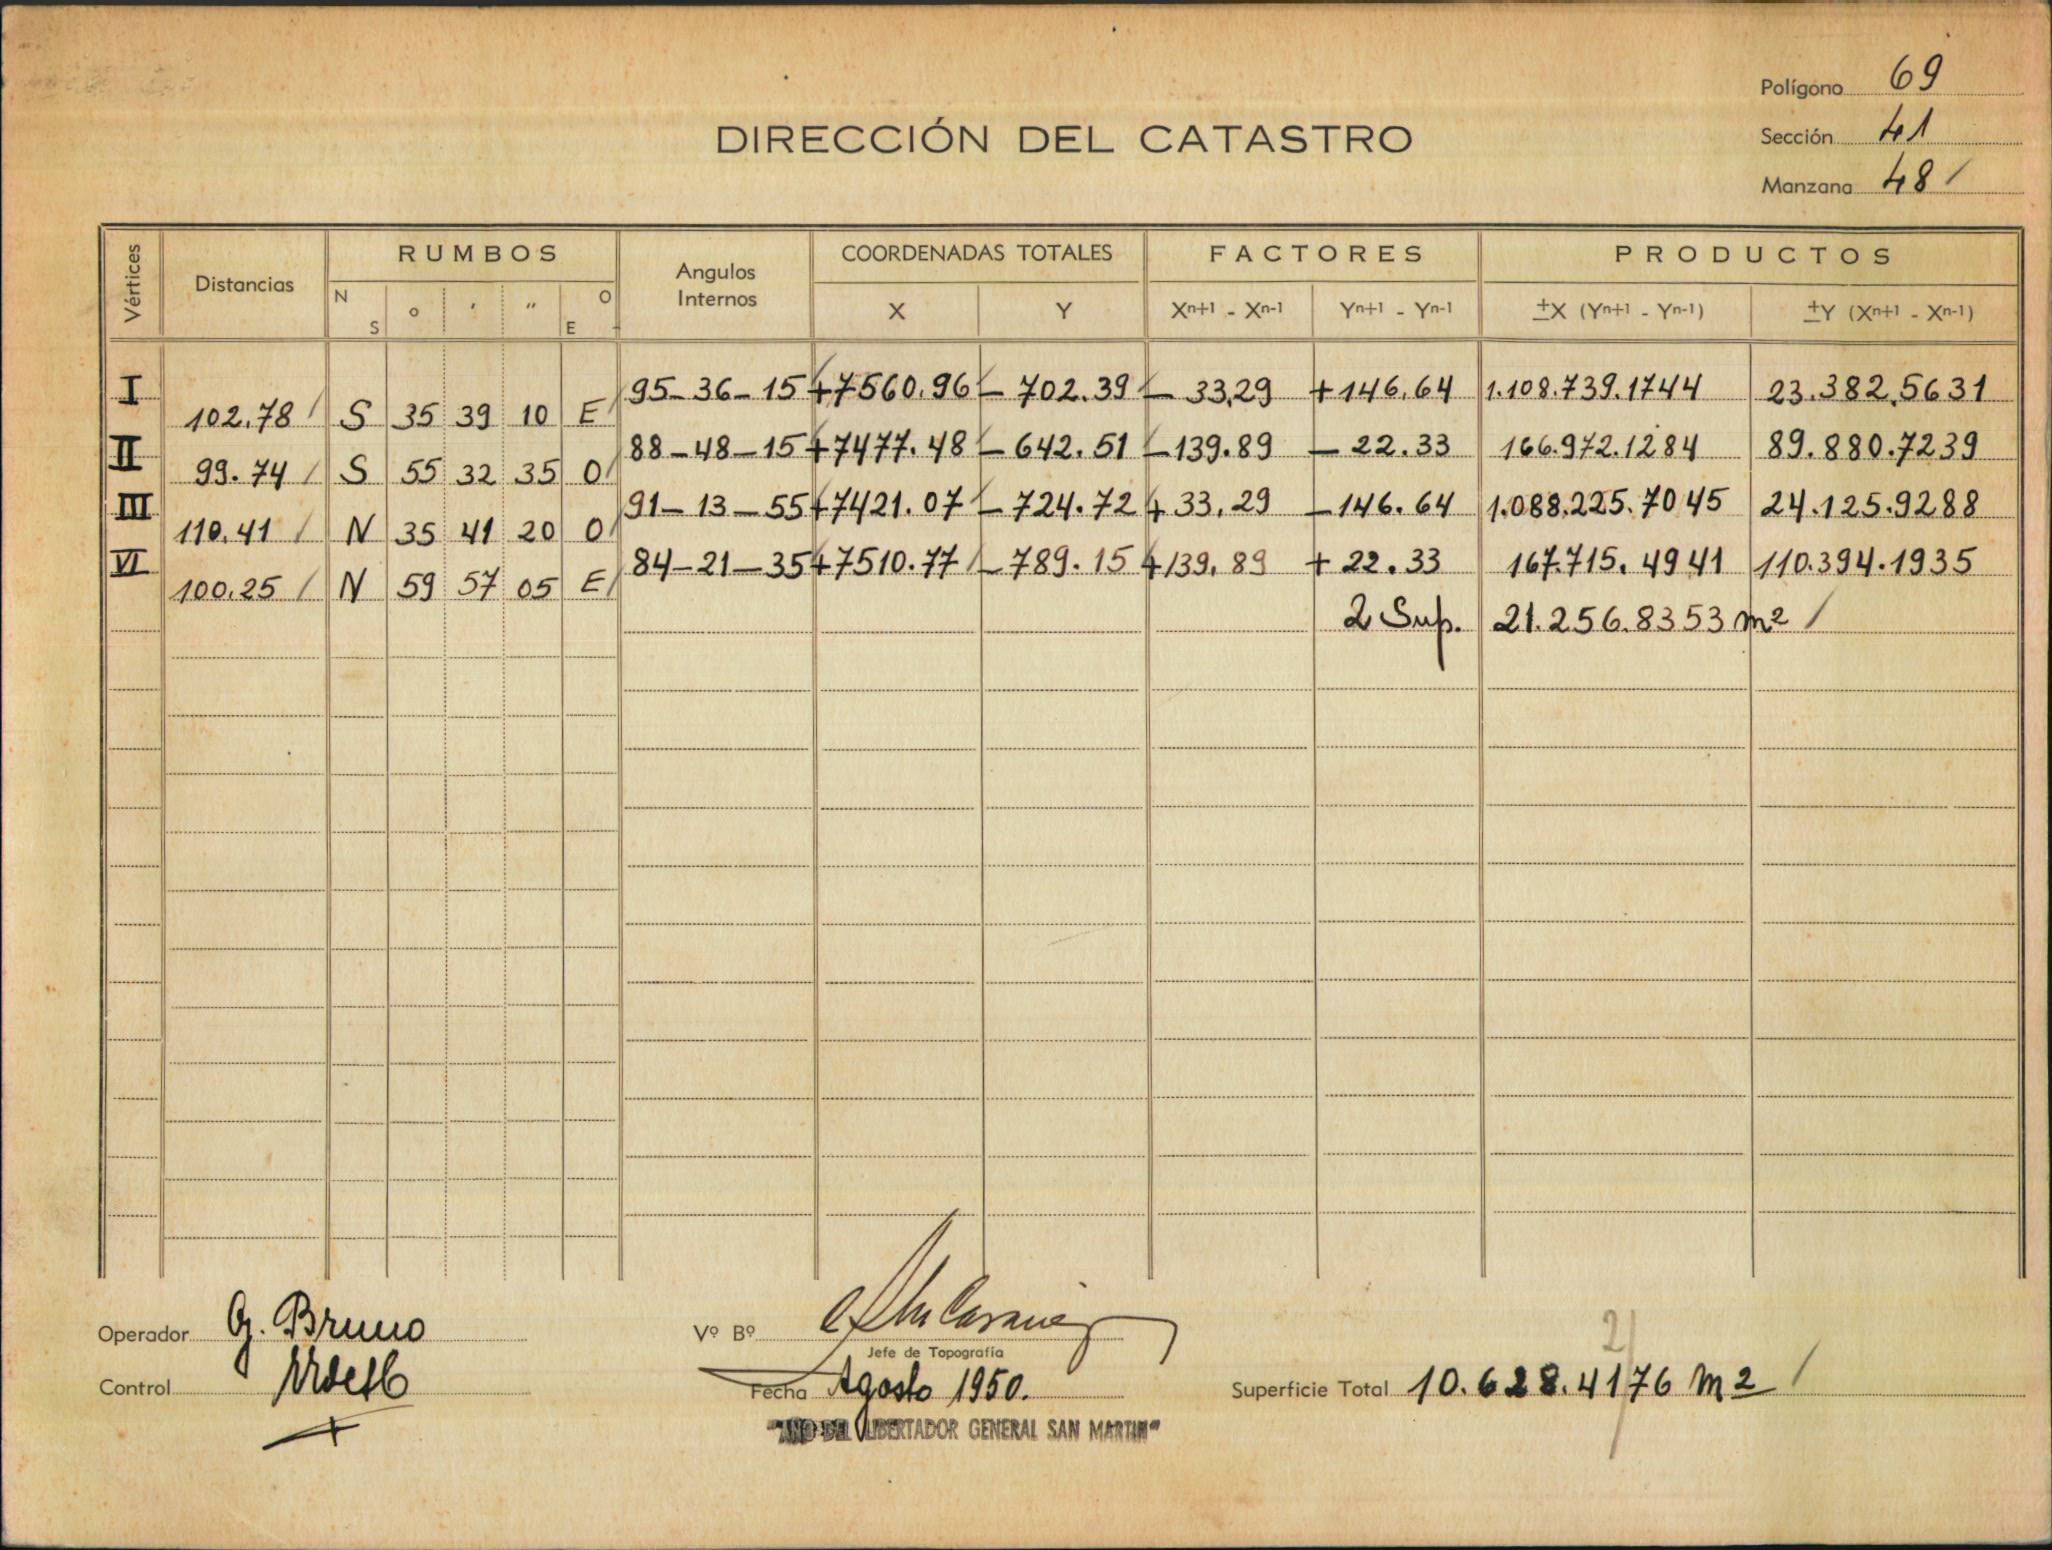 Polígono 69
Sección 41
Manzana 48
DIRECCIÓN DEL CATASTRO
Vértices Distancias RUMBOS Angulos Internos COORDENADAS TOTALES FACTORES PRODUCTOS
N S ° ' " O E X Y Xn+1 - Xn-1 Yn+1 - Yn-1 ±X (Yn+1 - Yn-1) ±Y (Xn+1 - Xn-1)
I 95-36-15 +7560.96 - 702.39 - 33,29 +146.64 1.108.739.1744 23.382.5631
102.78 S 35 39 10 E
II 88-48-15 +7477.48 - 642.51 -139.89 - 22.33 166.972.1284 89.880.7239
99.74 S 55 32 35 O
III 91-13-55 +7421.07 -724.72 + 33.29 -146.64 1.088.225.7045 24.125.9288
110.41 N 35 41 20 O
VI 84-21-35 +7510.77 -789.15 +139.89 + 22.33 167.715.4941 110.394.1935
100.25 N 59 57 05 E
2 Sup. 21.256.8353 m2
Operador G. Bruno
Control
Vº Bº
Jefe de Topografía
Fecha Agosto 1950.
"AÑO DEL LIBERTADOR GENERAL SAN MARTIN"
2/
Superficie Total 10.628.4176 m2